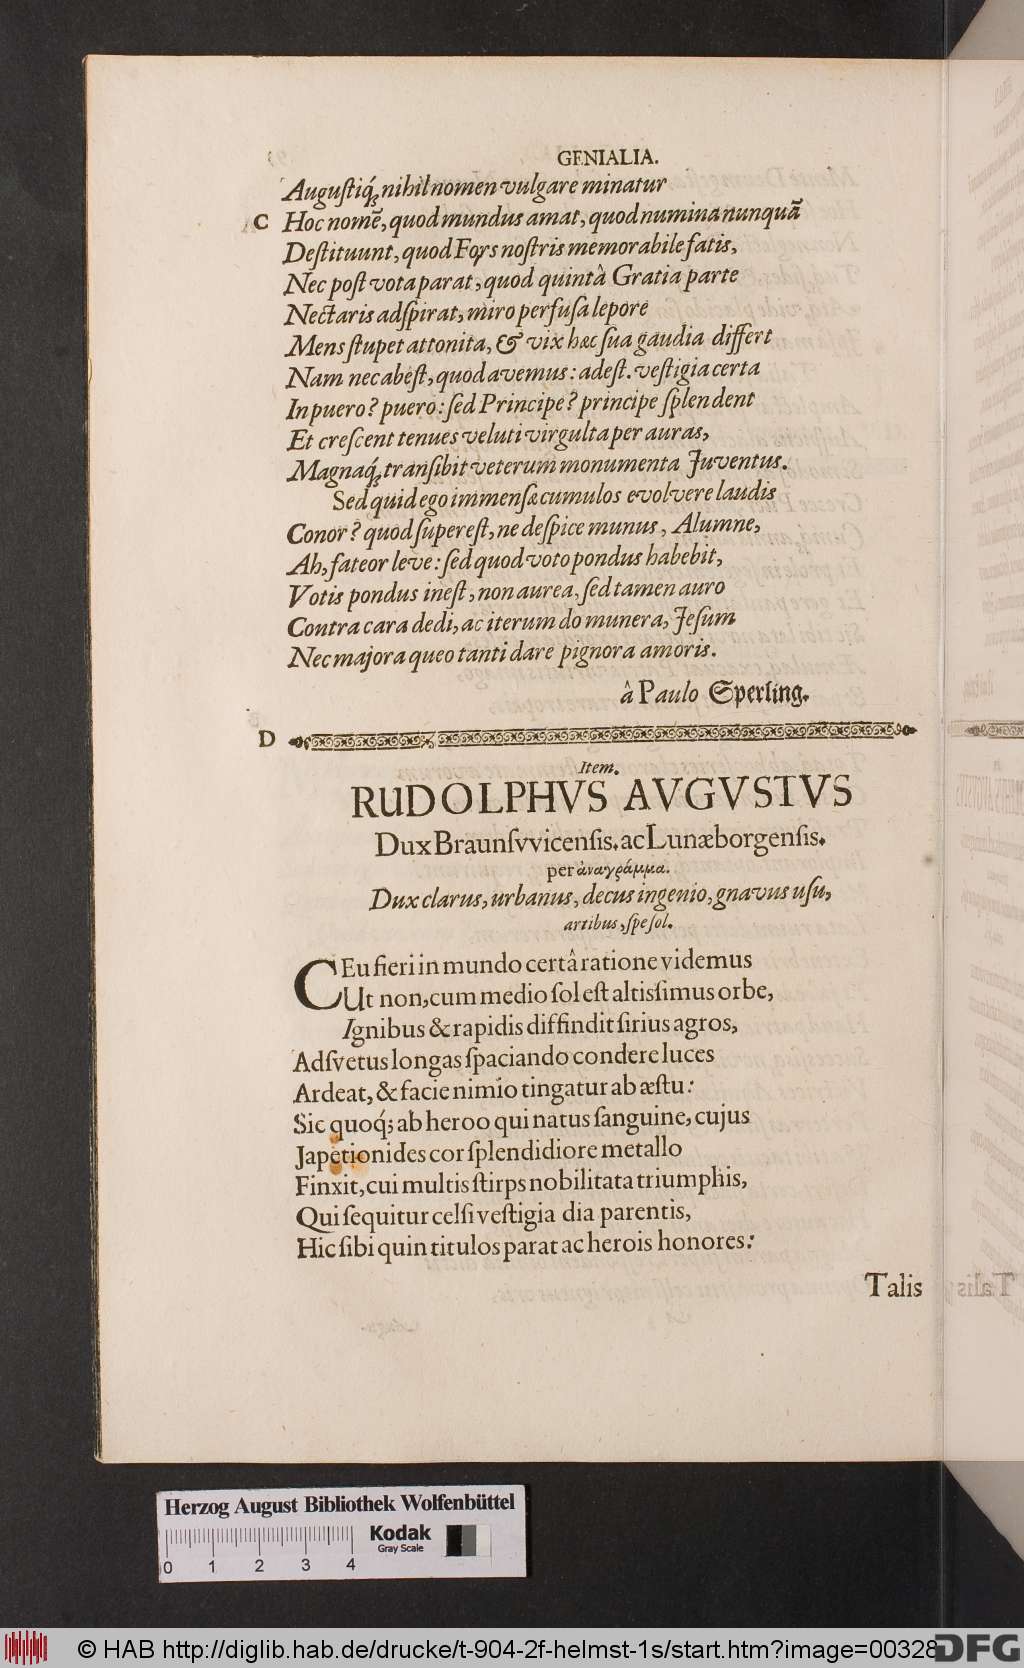 GENIALIA.
Auguſtiq́; nihil nomen vulgare minatur
C Hoc nomē, quod mundus amat, quod numina nunquā
Deſtituunt, quod Fors noſtris memorabile fatis,
Nec poſt vota parat, quod quintâ Gratia parte
Nectaris adſpirat, miro perfuſa lepore
Mens ſtupet attonita, & vix hæc ſua gaudia differt
Nam nec abeſt, quod avemus: adeſt. veſtigia certa
In puero? puero: ſed Principe? principe ſplendent
Et creſcent tenues veluti virgulta per auras,
Magnaq́; tranſibit veterum monumenta Juventus.
Sed quid ego immenſæ cumulos evolvere laudis
Conor? quod ſupereſt, ne deſpice munus, Alumne,
Ah, fateor leve: ſed quod voto pondus habebit,
Votis pondus ineſt, non aurea, ſed tamen auro
Contra cara dedi, ac iterum do munera, Jeſum
Nec majora queo tanti dare pignora amoris.
â Paulo Sperling.
D
Item.
RUDOLPHVS AVGVSTVS
Dux Braunſvvicenſis. ac Lunæborgenſis.
per ἀναγράμμα.
Dux clarus, urbanus, decus ingenio, gnavus uſu,
artibus, ſpe ſol.
CEu fieri in mundo certâ ratione videmus
Ut non, cum medio ſol eſt altiſsimus orbe,
Ignibus & rapidis diffindit ſirius agros,
Adſvetus longas ſpaciando condere luces
Ardeat, & facie nimio tingatur ab æſtu:
Sic quoq́; ab heroo qui natus ſanguine, cujus
Japetionides cor ſplendidiore metallo
Finxit, cui multis ſtirps nobilitata triumphis,
Qui ſequitur celſi veſtigia dia parentis,
Hic ſibi quin titulos parat ac herois honores:
Talis
Herzog August Bibliothek Wolfenbüttel
Kodak
Gray Scale
0 1 2 3 4
© HAB http://diglib.hab.de/drucke/t-904-2f-helmst-1s/start.htm?image=00328
DFG